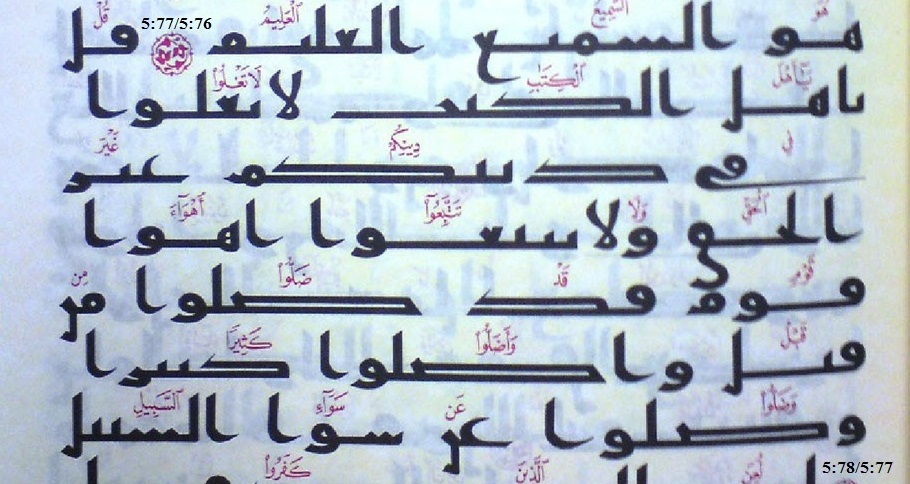 هُوَ ٱلسَّمِيعُ ٱلْعَلِيمُ 5:77/5:76 قُلْ
هو السميع العليم قل
يَـٰٓأَهْلَ ٱلْكِتَـٰبِ لَا تَغْلُوا۟
ياهل الكتب لا تغلوا
فِى دِينِكُمْ غَيْرَ
فى دينكم غير
ٱلْحَقِّ وَلَا تَتَّبِعُوٓا۟ أَهْوَآءَ
الحق ولا تتبعوا اهوا
قَوْمٍ قَدْ ضَلُّوا۟ مِن
قوم قد ضلوا من
قَبْلُ وَأَضَلُّوا۟ كَثِيرًا
قبل واضلوا كثيرا
وَضَلُّوا۟ عَن سَوَآءِ ٱلسَّبِيلِ
وضلوا عن سوا السبيل
5:78/5:77 لُعِنَ ٱلَّذِينَ كَفَرُوا۟